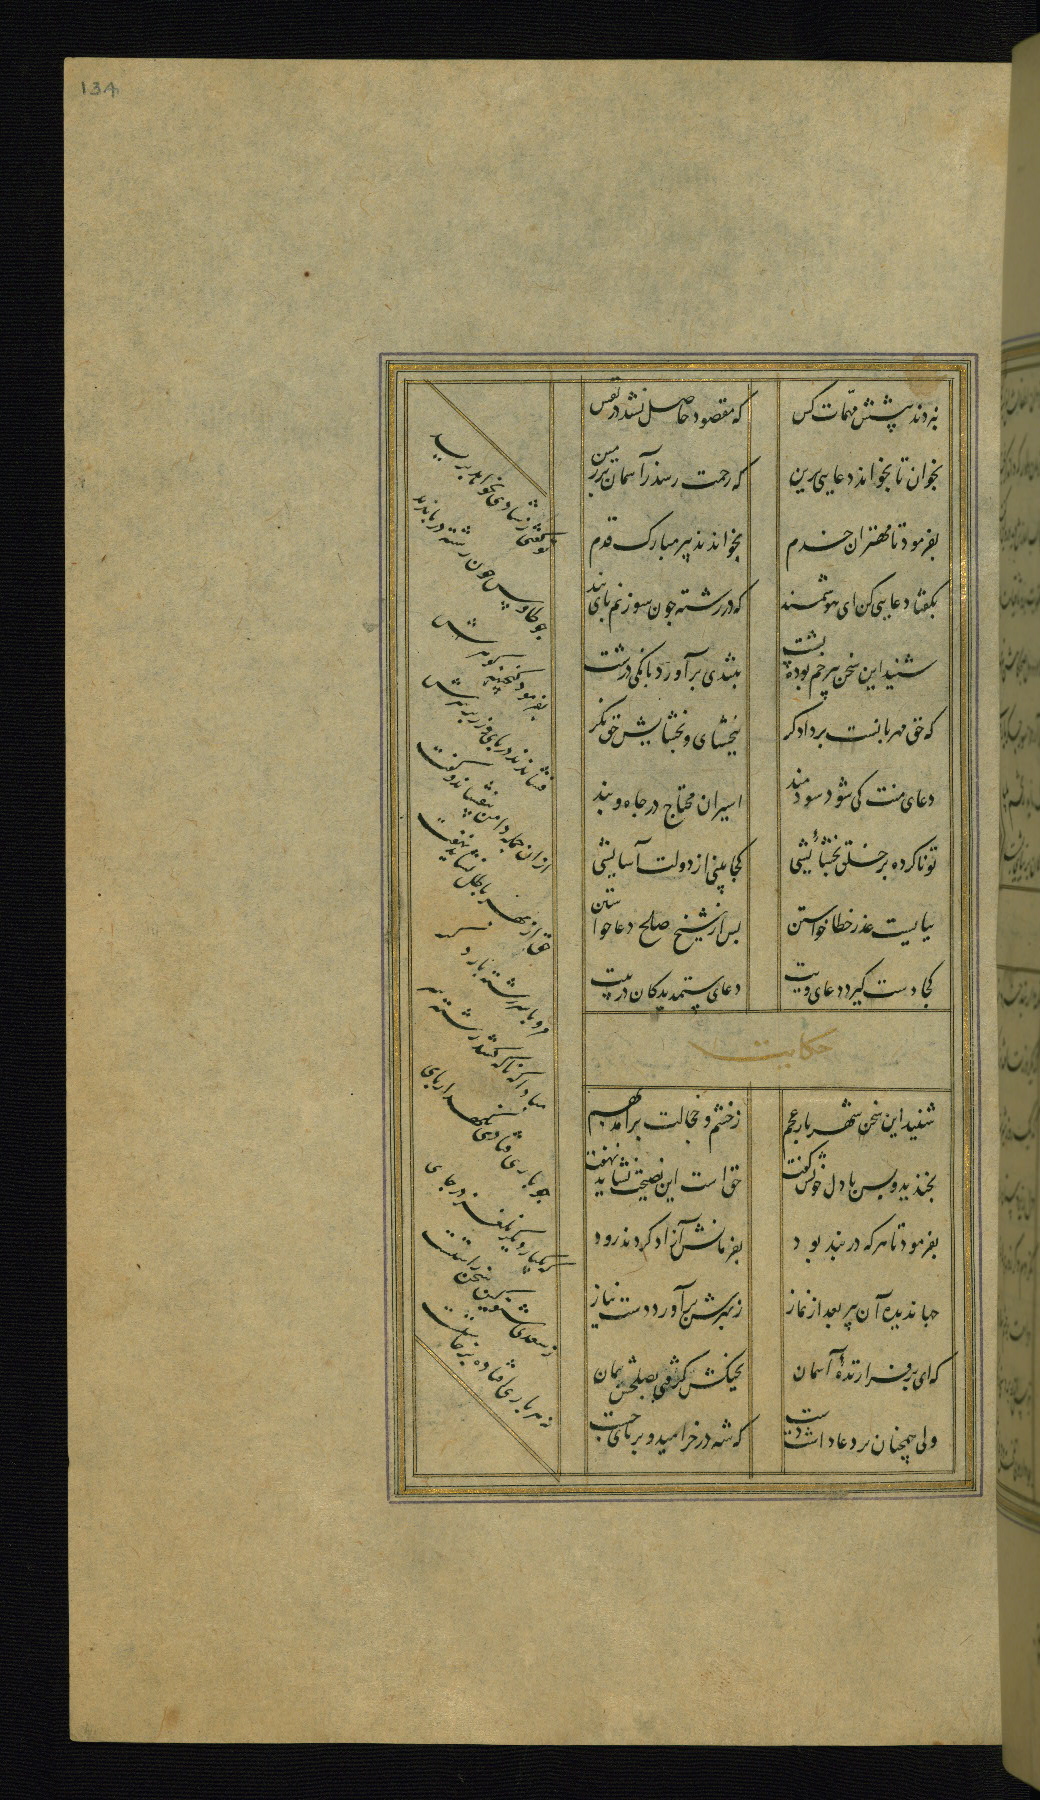 134
نبردند پیشش مهمات کس
که مقصود حاصل نشد در نفس
بخوان تا بخواند دعایی برین
که رحمت رسد ز آسمان بر زمین
بفرمود تا مهتران خدم
بخواندند پیر مبارک قدم
بگفتا دعایی کن ای هوشمند
که در رشته چون سوزنم پای بند
شنید این سخن پیر خم بوده پشت
بتندی برآورد بانگی درشت
که حق مهربانست بر دادگر
ببخشای و بخشایش حق نگر
دعای منت کی شود سودمند
اسیران محتاج در چاه و بند
تو ناکرده بر خلق بخشایشی
کجا بینی از دولت آسایشی
ببایست عذر خطا خواستن
پس از شیخ صالح دعا خواستن
کجا دست گیرد دعای ویت
دعای ستمدیدگان در پیت
حکایت
شنید این سخن شهریار عجم
ز خشم و خجالت برآمد بهم
بخندید و پس با دل خویش گفت
حق است این نصیحت نشاید نهفت
بفرمود تا هر که در بند بود
بفرمانش آزاد کردند زود
جهاندیده آن پیر بعد از نماز
ز بهرش برآورد دست نیاز
که ای برفرازندهٔ آسمان
بجنگش گرفتی بصلحش بمان
ولی همچنان بر دعا داشت دست
که شه در خرامید و بر پای جست
تو گفتی ز شادی بخواهد پرید
چو طاوس چون رشته در پا ندید
بفرمود گنجینه گوهرش
فشاندند در پای و زر بر سرش
از آن جمله دامن بیفشاند و گفت
حق از بهر باطل نشاید نهفت
مرو با سر رشته بار دگر
مبادا که ناگه کشد رشته سر
چو باری فتادی نگه دار پای
که یکبار دیگر بلغزد ز جای
ز سعدی شنو کین سخن راستست
نه هر باری افتاده برخاستست